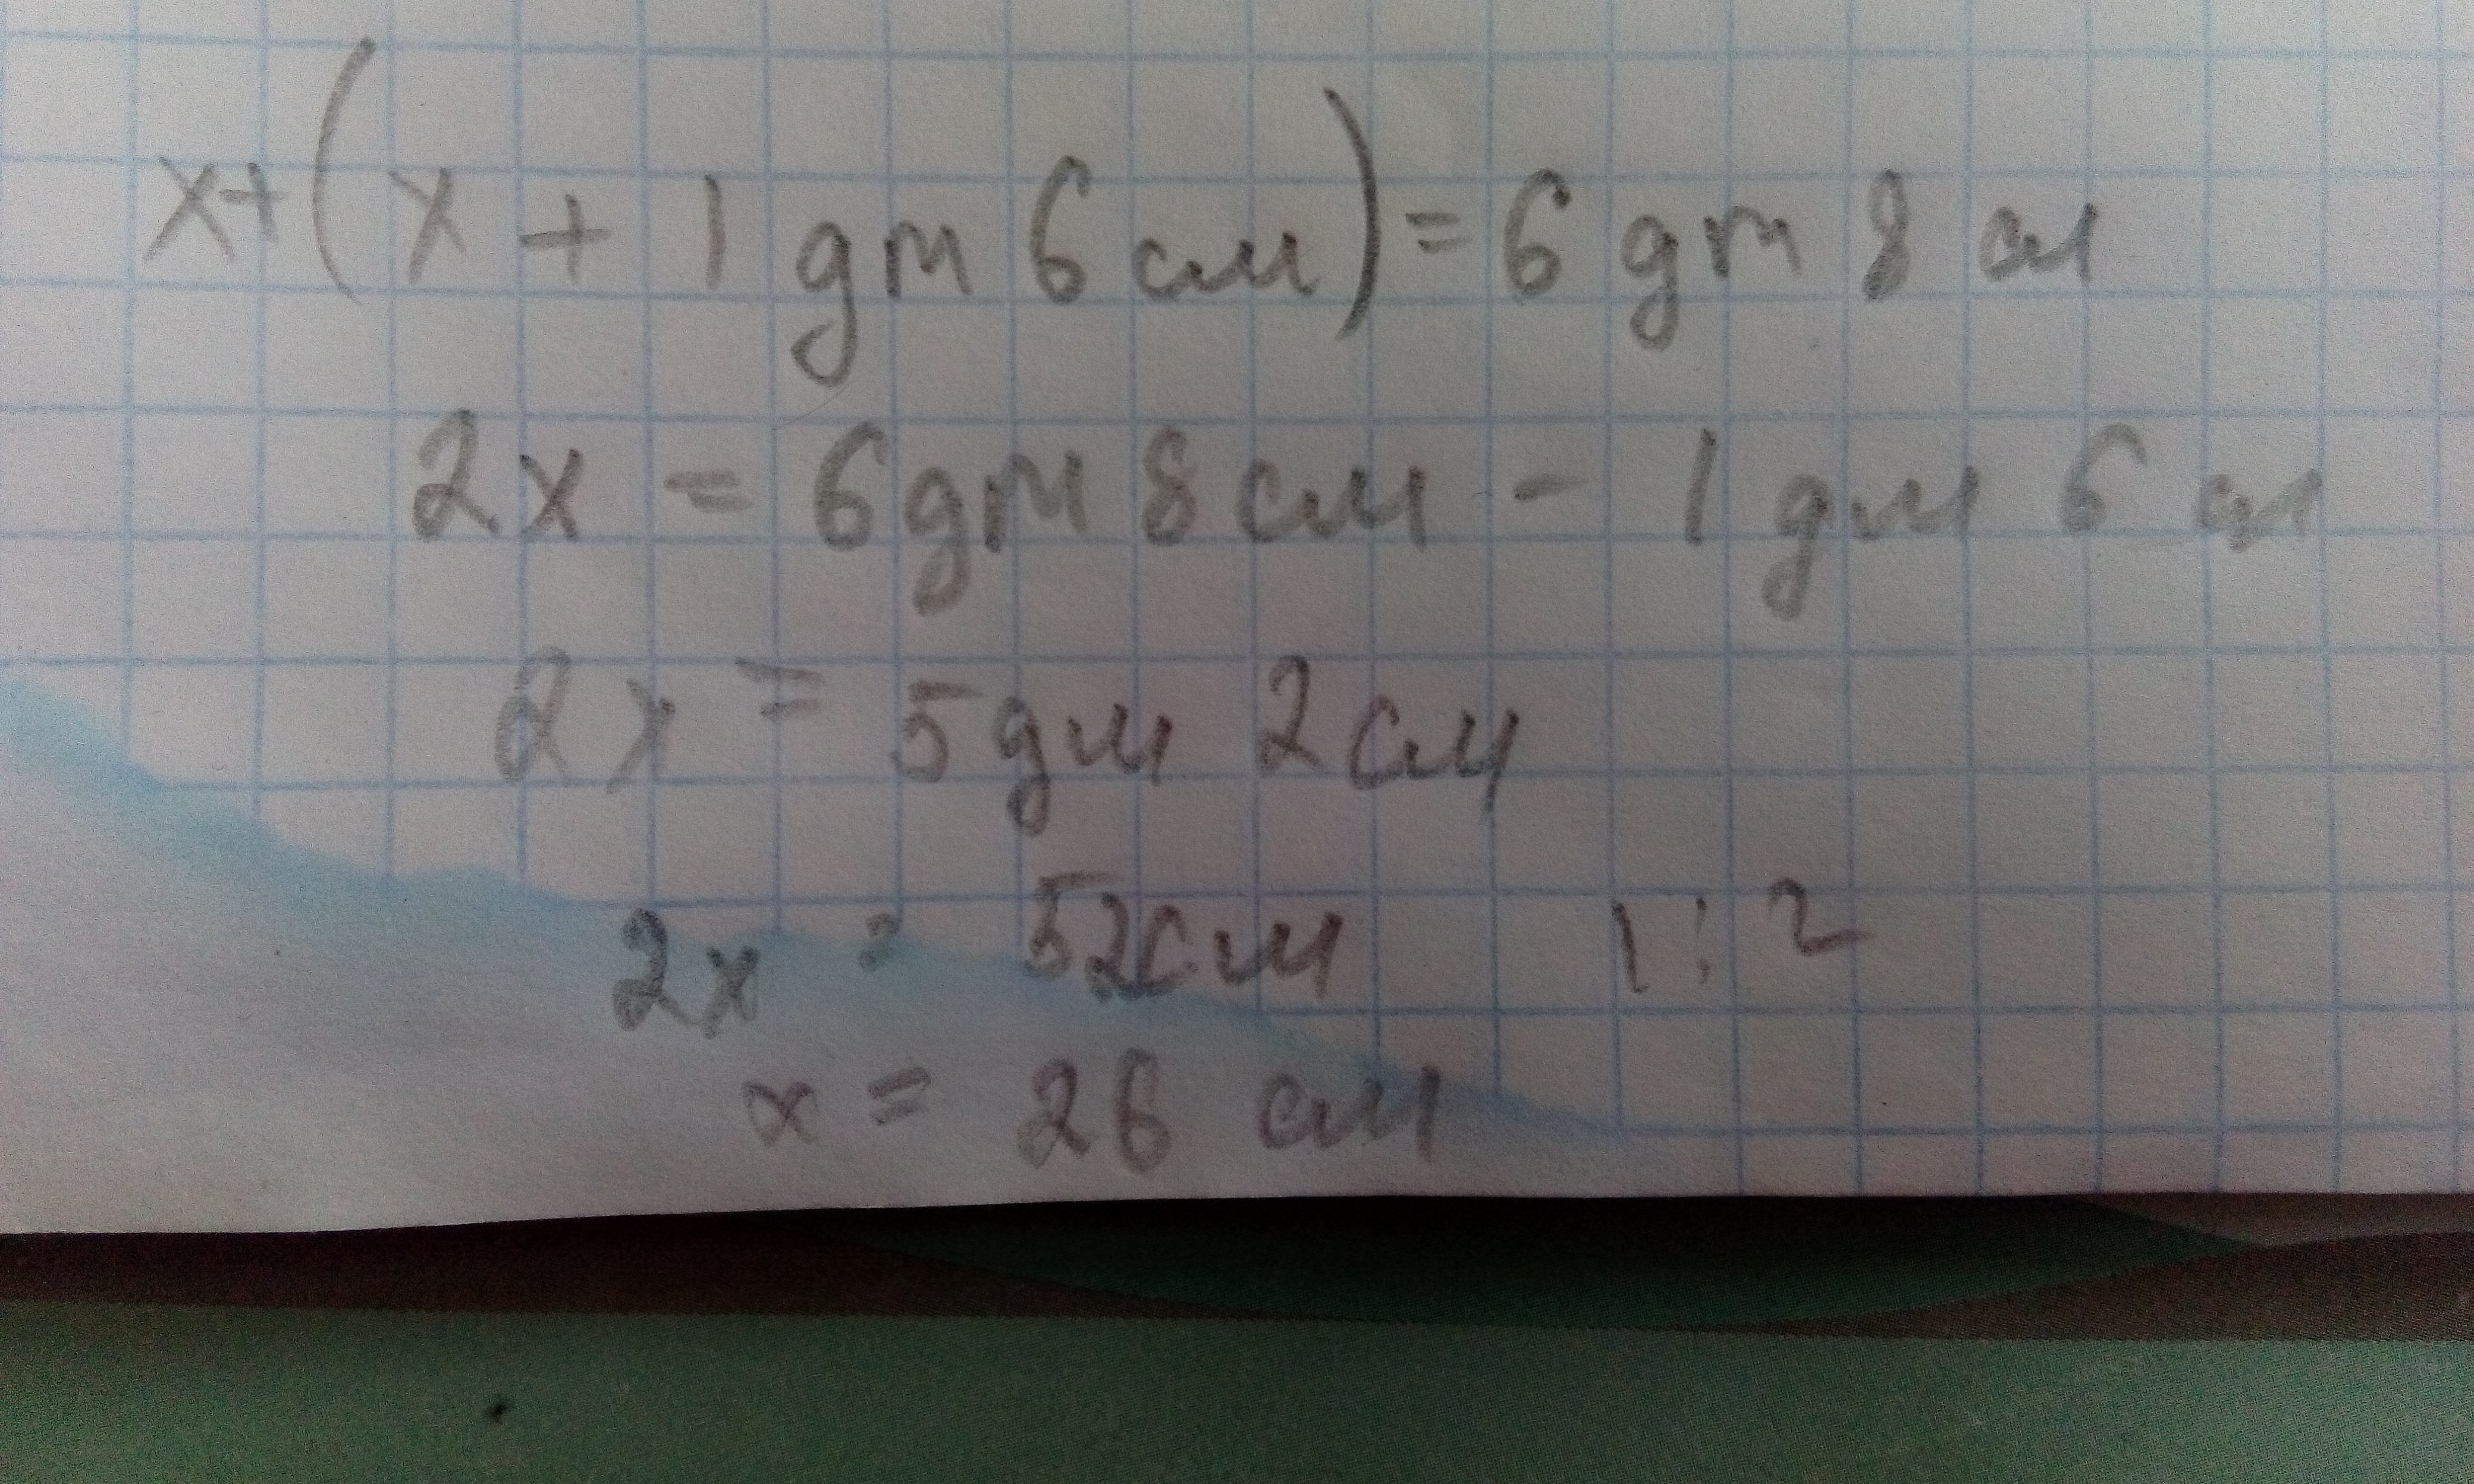 x+(x + 1 дм 6 см) = 6 дм 8 см
2x = 6 дм 8 см - 1 дм 6 см
2x = 5 дм 2 см
2x = 52 см |:2
x = 26 см